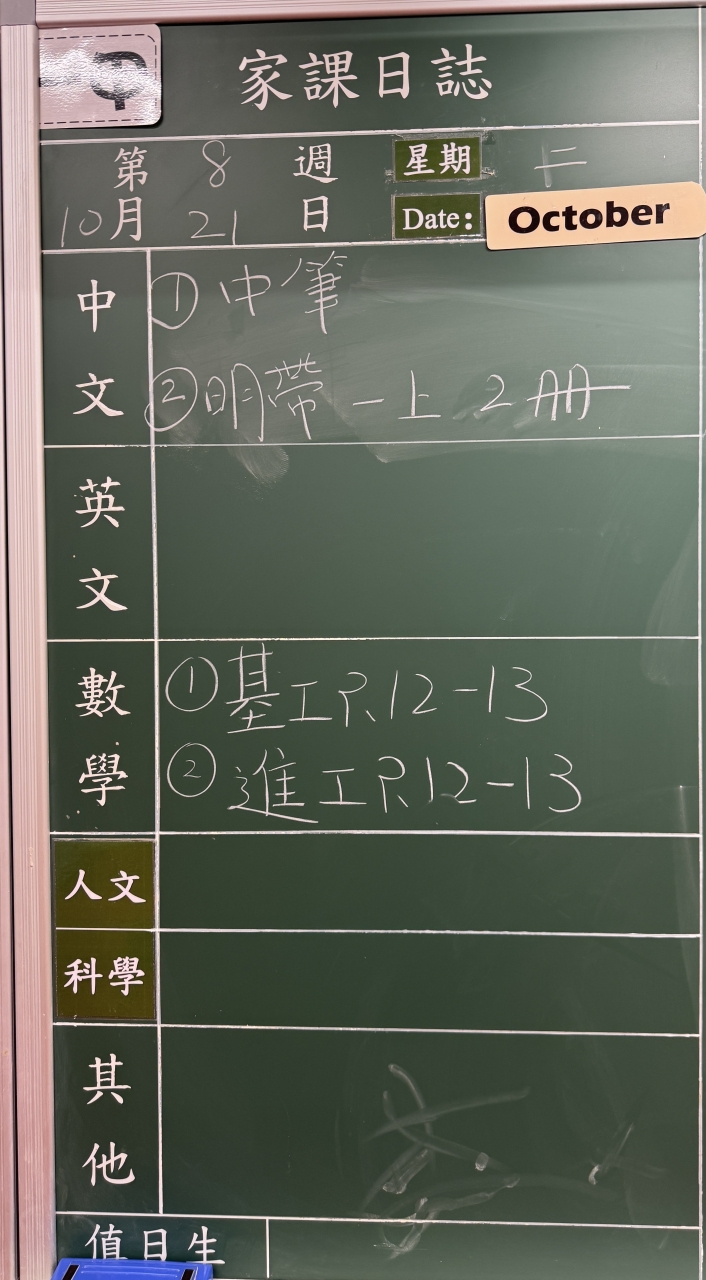 家課日誌
第 8 週 星期 二
10月 21 日 Date: October
中文 ①中筆
②明帶一上 2冊
英文
數學 ①基工P.12-13
②進工P.12-13
人文
科學
其他
值日生